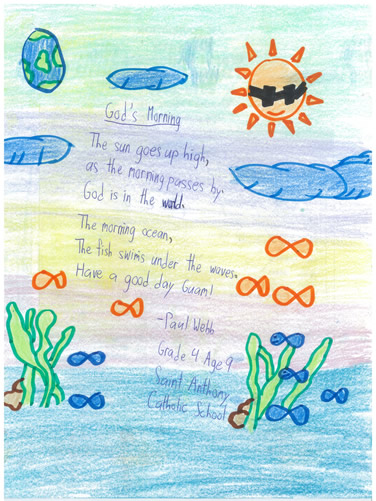 God's Morning
The sun goes up high,
as the morning passes by.
God is in the world.
The morning ocean,
The fish swims under the waves.
Have a good day Guam!
-Paul Webb
Grade 4 Age 9
Saint Anthony
Catholic School